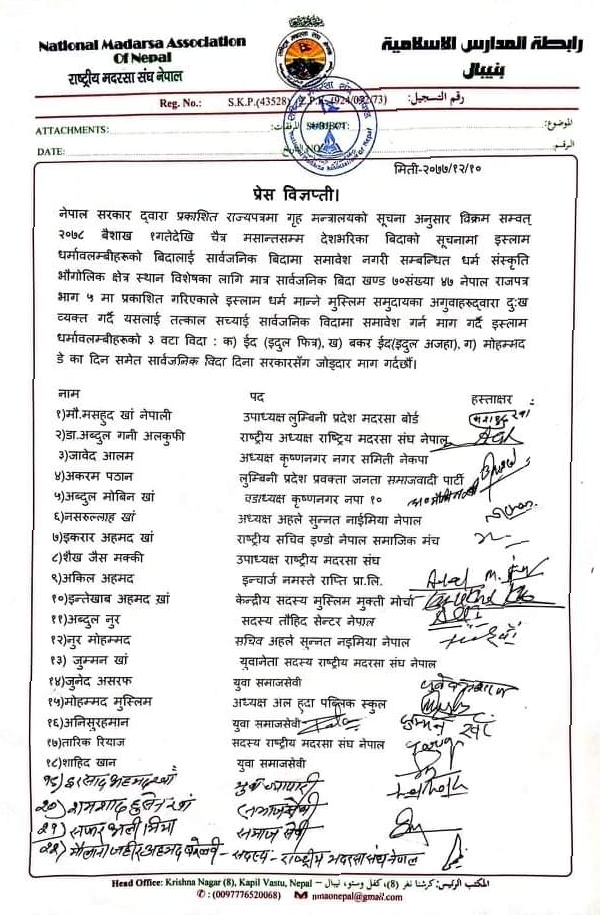 National Madarsa Association
Of Nepal
राष्ट्रीय मदरसा संघ नेपाल
رابطة المدارس الاسلامية
بنيبال
Reg. No.: S.K.P.(43528) 924/092(73) رقم التسجيل:
ATTACHMENTS: SUBJECT: الموضوع:
DATE: NO الرقم
मिती-२०७७/१२/१०
प्रेस विज्ञप्ती।
नेपाल सरकार द्वारा प्रकाशित राज्यपत्रमा गृह मन्त्रालयको सूचना अनुसार विक्रम सम्वत्
२०७८ बैशाख १गतेदेखि चैत्र मसान्तसम्म देशभरिका बिदाको सूचनामा इस्लाम
धर्मावलम्बीहरूको बिदालाई सार्वजनिक बिदामा समावेश नगरी सम्बन्धित धर्म संस्कृति
भौगोलिक क्षेत्र स्थान विशेषका लागि मात्र सार्वजनिक बिदा खण्ड ७०संख्या ४७ नेपाल राजपत्र
भाग ५ मा प्रकाशित गरिएकाले इस्लाम धर्म मान्ने मुस्लिम समुदायका अगुवाहरुद्वारा दुःख
व्यक्त गर्दै यसलाई तत्काल सच्याई सार्वजनिक विदामा समावेश गर्न माग गर्दै इस्लाम
धर्मावलम्बीहरूको ३ वटा विदा : क) ईद (इदुल फित्र), ख) बकर ईद(इदुल अजहा), ग) मोहम्मद
डे का दिन समेत सार्वजनिक विदा दिना सरकारसँग जोड्दार माग गर्दछौं।
नाम पद हस्ताक्षर
१)मौ.मसहुद खां नेपाली उपाध्यक्ष लुम्बिनी प्रदेश मदरसा बोर्ड
२)डा.अब्दुल गनी अलकुफी राष्ट्रीय अध्यक्ष राष्ट्रिय मदरसा संघ नेपाल
३)जावेद आलम अध्यक्ष कृष्णनगर नगर समिती नेकपा
४)अकरम पठान लुम्बिनी प्रदेश प्रवक्ता जनता समाजवादी पार्टी
५)अब्दुल मोबिन खां वडाध्यक्ष कृष्णनगर नपा १०
६)नसरुल्लाह खां अध्यक्ष अहले सुन्नत नाईमिया नेपाल
७)इकरार अहमद खां राष्ट्रीय सचिव इण्डो नेपाल समाजिक मंच
८)शैख जैस मक्की उपाध्यक्ष राष्ट्रीय मदरसा संघ
९)अकिल अहमद इन्चार्ज नमस्ते राप्ति प्रा.लि.
१०)इन्तेखाब अहमद खां केन्द्रीय सदस्य मुस्लिम मुक्ती मोर्चा
११)अब्दुल नुर सदस्य तौहिद सेन्टर नेपाल
१२)नुर मोहम्मद सचिव अहले सुन्नत नइमिया नेपाल
१३) जुम्मन खां युवानेता सदस्य राष्ट्रीय मदरसा संघ नेपाल
१४)जुनेद असरफ युवा समाजसेवी
१५)मोहम्मद मुस्लिम अध्यक्ष अल हुदा पब्लिक स्कुल
१६)अनिसुरहमान युवा समाजसेवी
१७)तारिक रियाज सदस्य राष्ट्रीय मदरसा संघ नेपाल
१८)शाहिद खान युवा समाजसेवी
१९) इरसाद अहमद खाँ युवा व्यापारी
२०) शमशाद हुसेन खां समाजसेवी
२१) सफर अली मिया समाज सेवी
२२) मौलाना जहीर अहमद - सदस्य - राष्ट्रीय मदरसा संघ नेपाल
Head Office: Krishna Nagar (8), Kapil Vastu, Nepal – المكتب الرئيس: كرشنا نغر (8)، كفل وستو، نيبال
: (0097776520068) nmaonepal@gmail.com